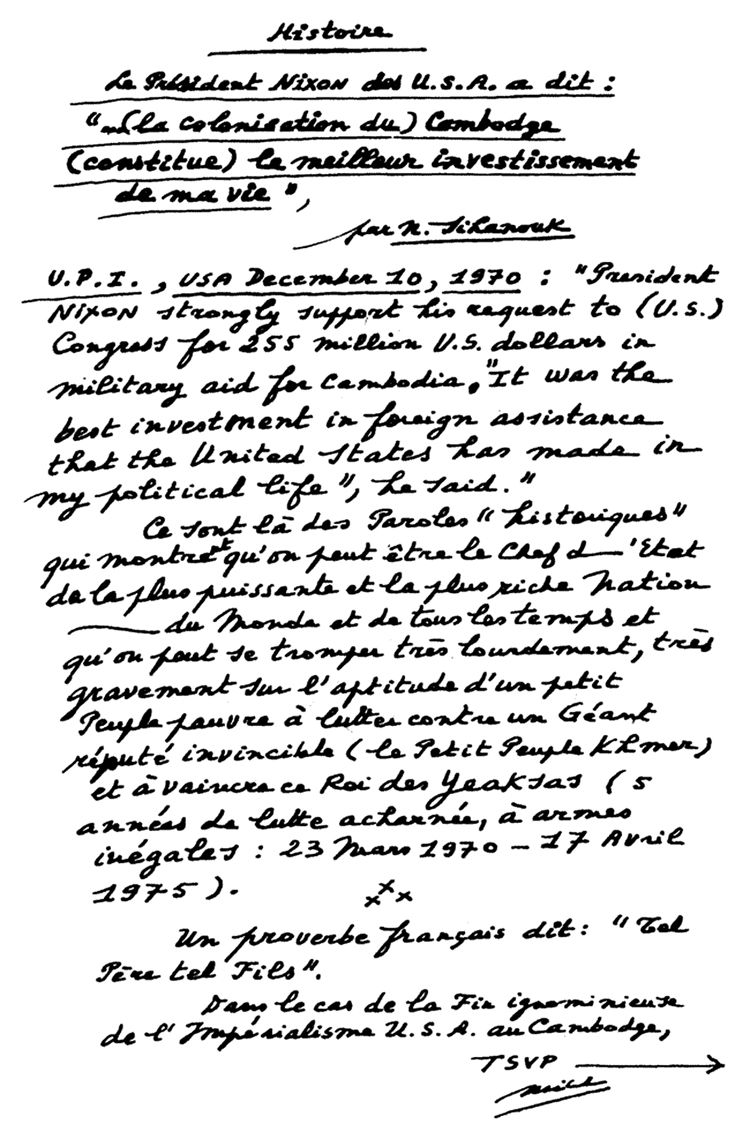 Histoire
Le Président Nixon des U.S.A. a dit :
"(la colonisation du) Cambodge
(constitue) le meilleur investissement
de ma vie",
par N. Sihanouk
U.P.I., USA December 10, 1970 : "President
Nixon strongly support his request to (U.S.)
Congress for 255 million U.S. dollars in
military aid for Cambodia. "It was the
best investment in foreign assistance
that the United States has made in
my political life", he said."
Ce sont là des Paroles "historiques"
qui montrent qu'on peut être le Chef d'Etat
de la plus puissante et la plus riche Nation
du Monde et de tous les temps et
qu'on peut se tromper très lourdement, très
gravement sur l'aptitude d'un petit
Peuple pauvre à lutter contre un Géant
réputé invincible (le Petit Peuple Khmer)
et à vaincre ce Roi des Yeaksas (5
années de lutte acharnée, à armes
inégales : 23 Mars 1970 – 17 Avril
1975).
x x x
Un proverbe français dit : "Tel
Père tel Fils".
Dans le cas de la Fin ignominieuse
de l'Impérialisme U.S.A. au Cambodge,
TSVP →